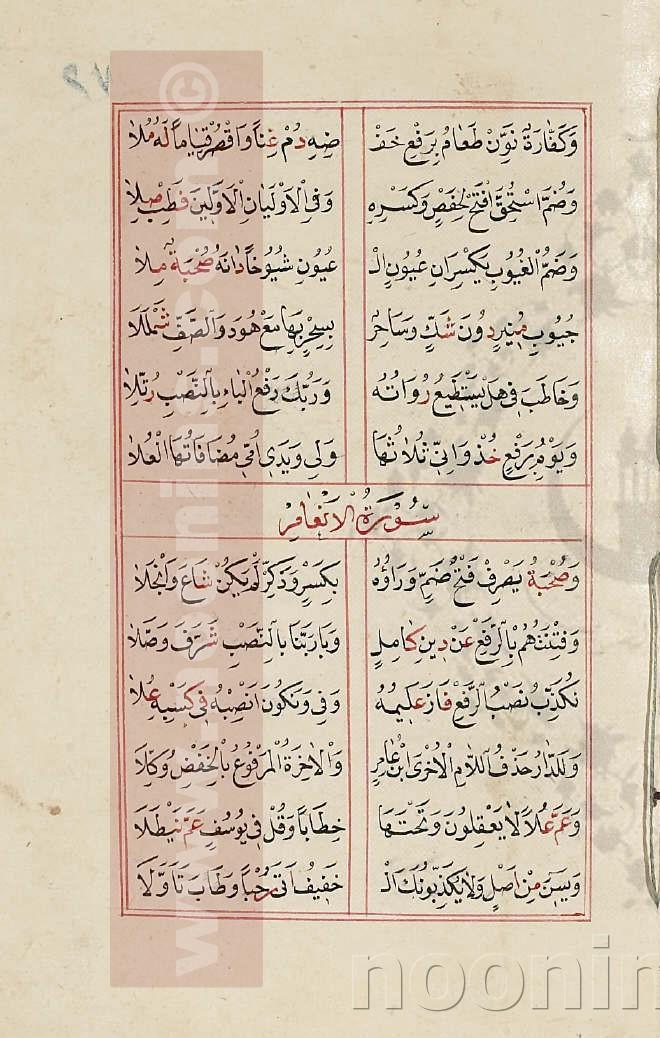 وَكَفَّارَةٌ نَوِّنْ طَعَامُ بِرَفْعِ خَفْ ضِهِ دُمْ غِنًا وَاقْصُرْ قِيَامًا لَهُ مُلَا
وَضُمَّ اسْتُحِقَّ افْتَحْ لِحَفْصٍ وَكَسْرِهِ وَفِي الْاَوْلَيَانِ الْاَوَّلِينَ فَطِبْ صِلَا
وَضَمُّ الْغُيُوبِ يَكْسِرَانِ عُيُونٍ الْ عُيُونِ شُيُوخًا دَانَهُ صُحْبَةٌ مِلَا
جُيُوبِ مُنِيرٍ دُونَ شَكٍّ وَسَاحِرٌ بِسِحْرٍ بِهَا مَعْ هُودَ وَالصَّفِّ شَمْلَلَا
وَخَاطَبَ فِي هَلْ يَسْتَطِيعُ رُوَاتُهُ وَرَبُّكَ رَفْعُ الْبَاءِ بِالنَّصْبِ رُتِّلَا
وَيَوْمُ بِرَفْعٍ خُذْ وَاِنِّي ثُلَاثُهَا وَلِي وَيَدِيَ اُمِّي مُضَافَاتُهَا الْعُلَا
سُورَةُ الْاَنْعَامِ
وَصُحْبَةُ يَصْرِفْ فَتْحُ ضَمٍّ وَرَاؤُهُ بِكَسْرٍ وَذَكِّرْ لَمْ يَكُنْ شَاعَ وَانْجَلَا
وَفِتْنَتُهُمْ بِالرَّفْعِ عَنْ دِينِ كَامِلٍ وَبَا رَبِّنَا بِالنَّصْبِ شَرَّفَ وَصَّلَا
نُكَذِّبُ نَصْبُ الرَّفْعِ فَازَ عَلِيمُهُ وَفِي وَنَكُونَ انْصِبْهُ فِي كَسْبِهِ عُلَا
وَلَلدَّارُ حَذْفُ اللَّامِ الْاُخْرَى ابْنُ عَامِرٍ وَالْاٰخِرَةُ الْمَرْفُوعُ بِالْخَفْضِ وُكِّلَا
وَعَمَّ عُلًا لَا يَعْقِلُونَ وَتَحْتَهَا خِطَابًا وَقُلْ فِي يُوسُفٍ عَمَّ نَيْطَلَا
وَيٰسِينَ مِنْ اَصْلٍ وَلَا يُكَذِّبُونَكَ الْ خَفِيفُ اَتَى رُحْبًا وَطَابَ تَاَوُّلَا
www.noonlib.com ©
noonin